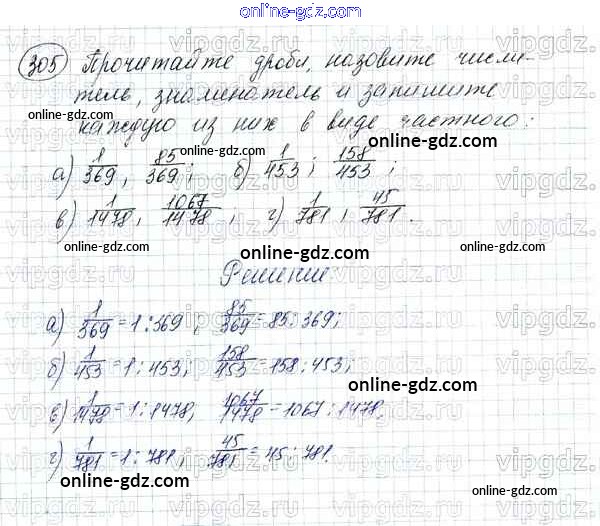 online-gdz.com
305 Прочитайте дроби, назовите числи-
тель, знаменатель и запишите
каждую из них в виде частного:
online-gdz.com
а) 1/369, 85/369; б) 1/453; 158/453;
online-gdz.com
в) 1/1478, 1067/1478, г) 1/781, 45/781.
online-gdz.com
online-gdz.com
online-gdz.com
Решение
а) 1/369 = 1:369, 85/369 = 85:369;
online-gdz.com
б) 1/453 = 1:453; 158/453 = 158:453;
online-gdz.com
в) 1/1478 = 1:1478, 1067/1478 = 1067:1478,
online-gdz.com
г) 1/781 = 1:781, 45/781 = 45:781.
online-gdz.com
online-gdz.com
online-gdz.com